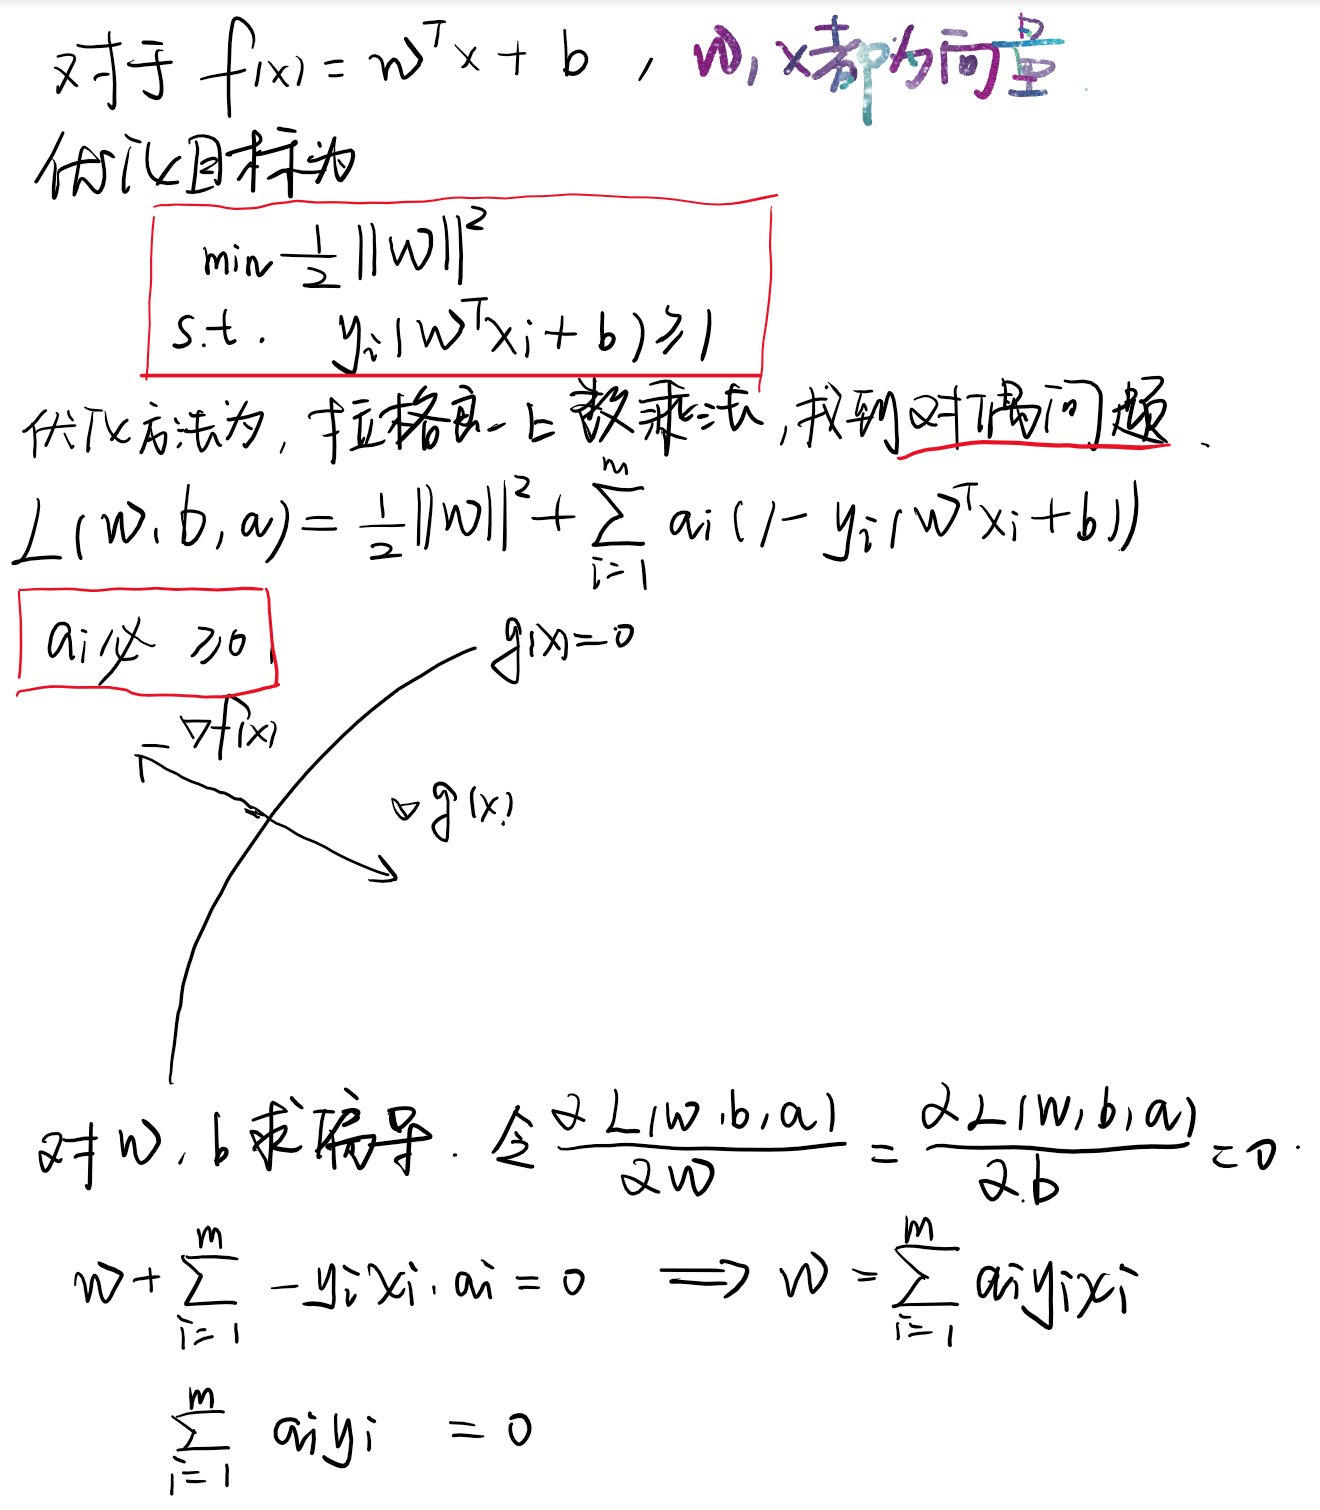 对于 f(x) = w^T x + b , w, x都为向量
优化目标为
min 1/2 ||w||^2
s.t. y_i(w^T x_i + b) ≥ 1
优化方法为, 拉格朗日数乘法, 找到对偶问题.
L(w, b, a) = 1/2 ||w||^2 + ∑_{i=1}^{m} a_i (1 - y_i(w^T x_i + b))
a_i ≥ 0
g(x) = 0
∇f(x)
∇g(x)
对 w, b 求偏导. 令 ∂L(w, b, a)/∂w = ∂L(w, b, a)/∂b = 0.
w + ∑_{i=1}^{m} -y_i x_i · a_i = 0 ⟹ w = ∑_{i=1}^{m} a_i y_i x_i
∑_{i=1}^{m} a_i y_i = 0